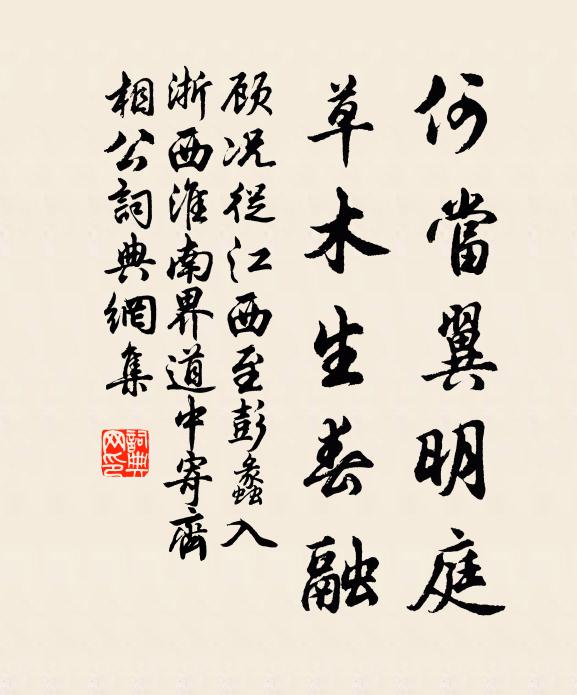 何當翼明庭
草木生春融
顾况從江西至彭蠡入
浙西淮南界道中寄齊
相公詞典網集
詞典
网印